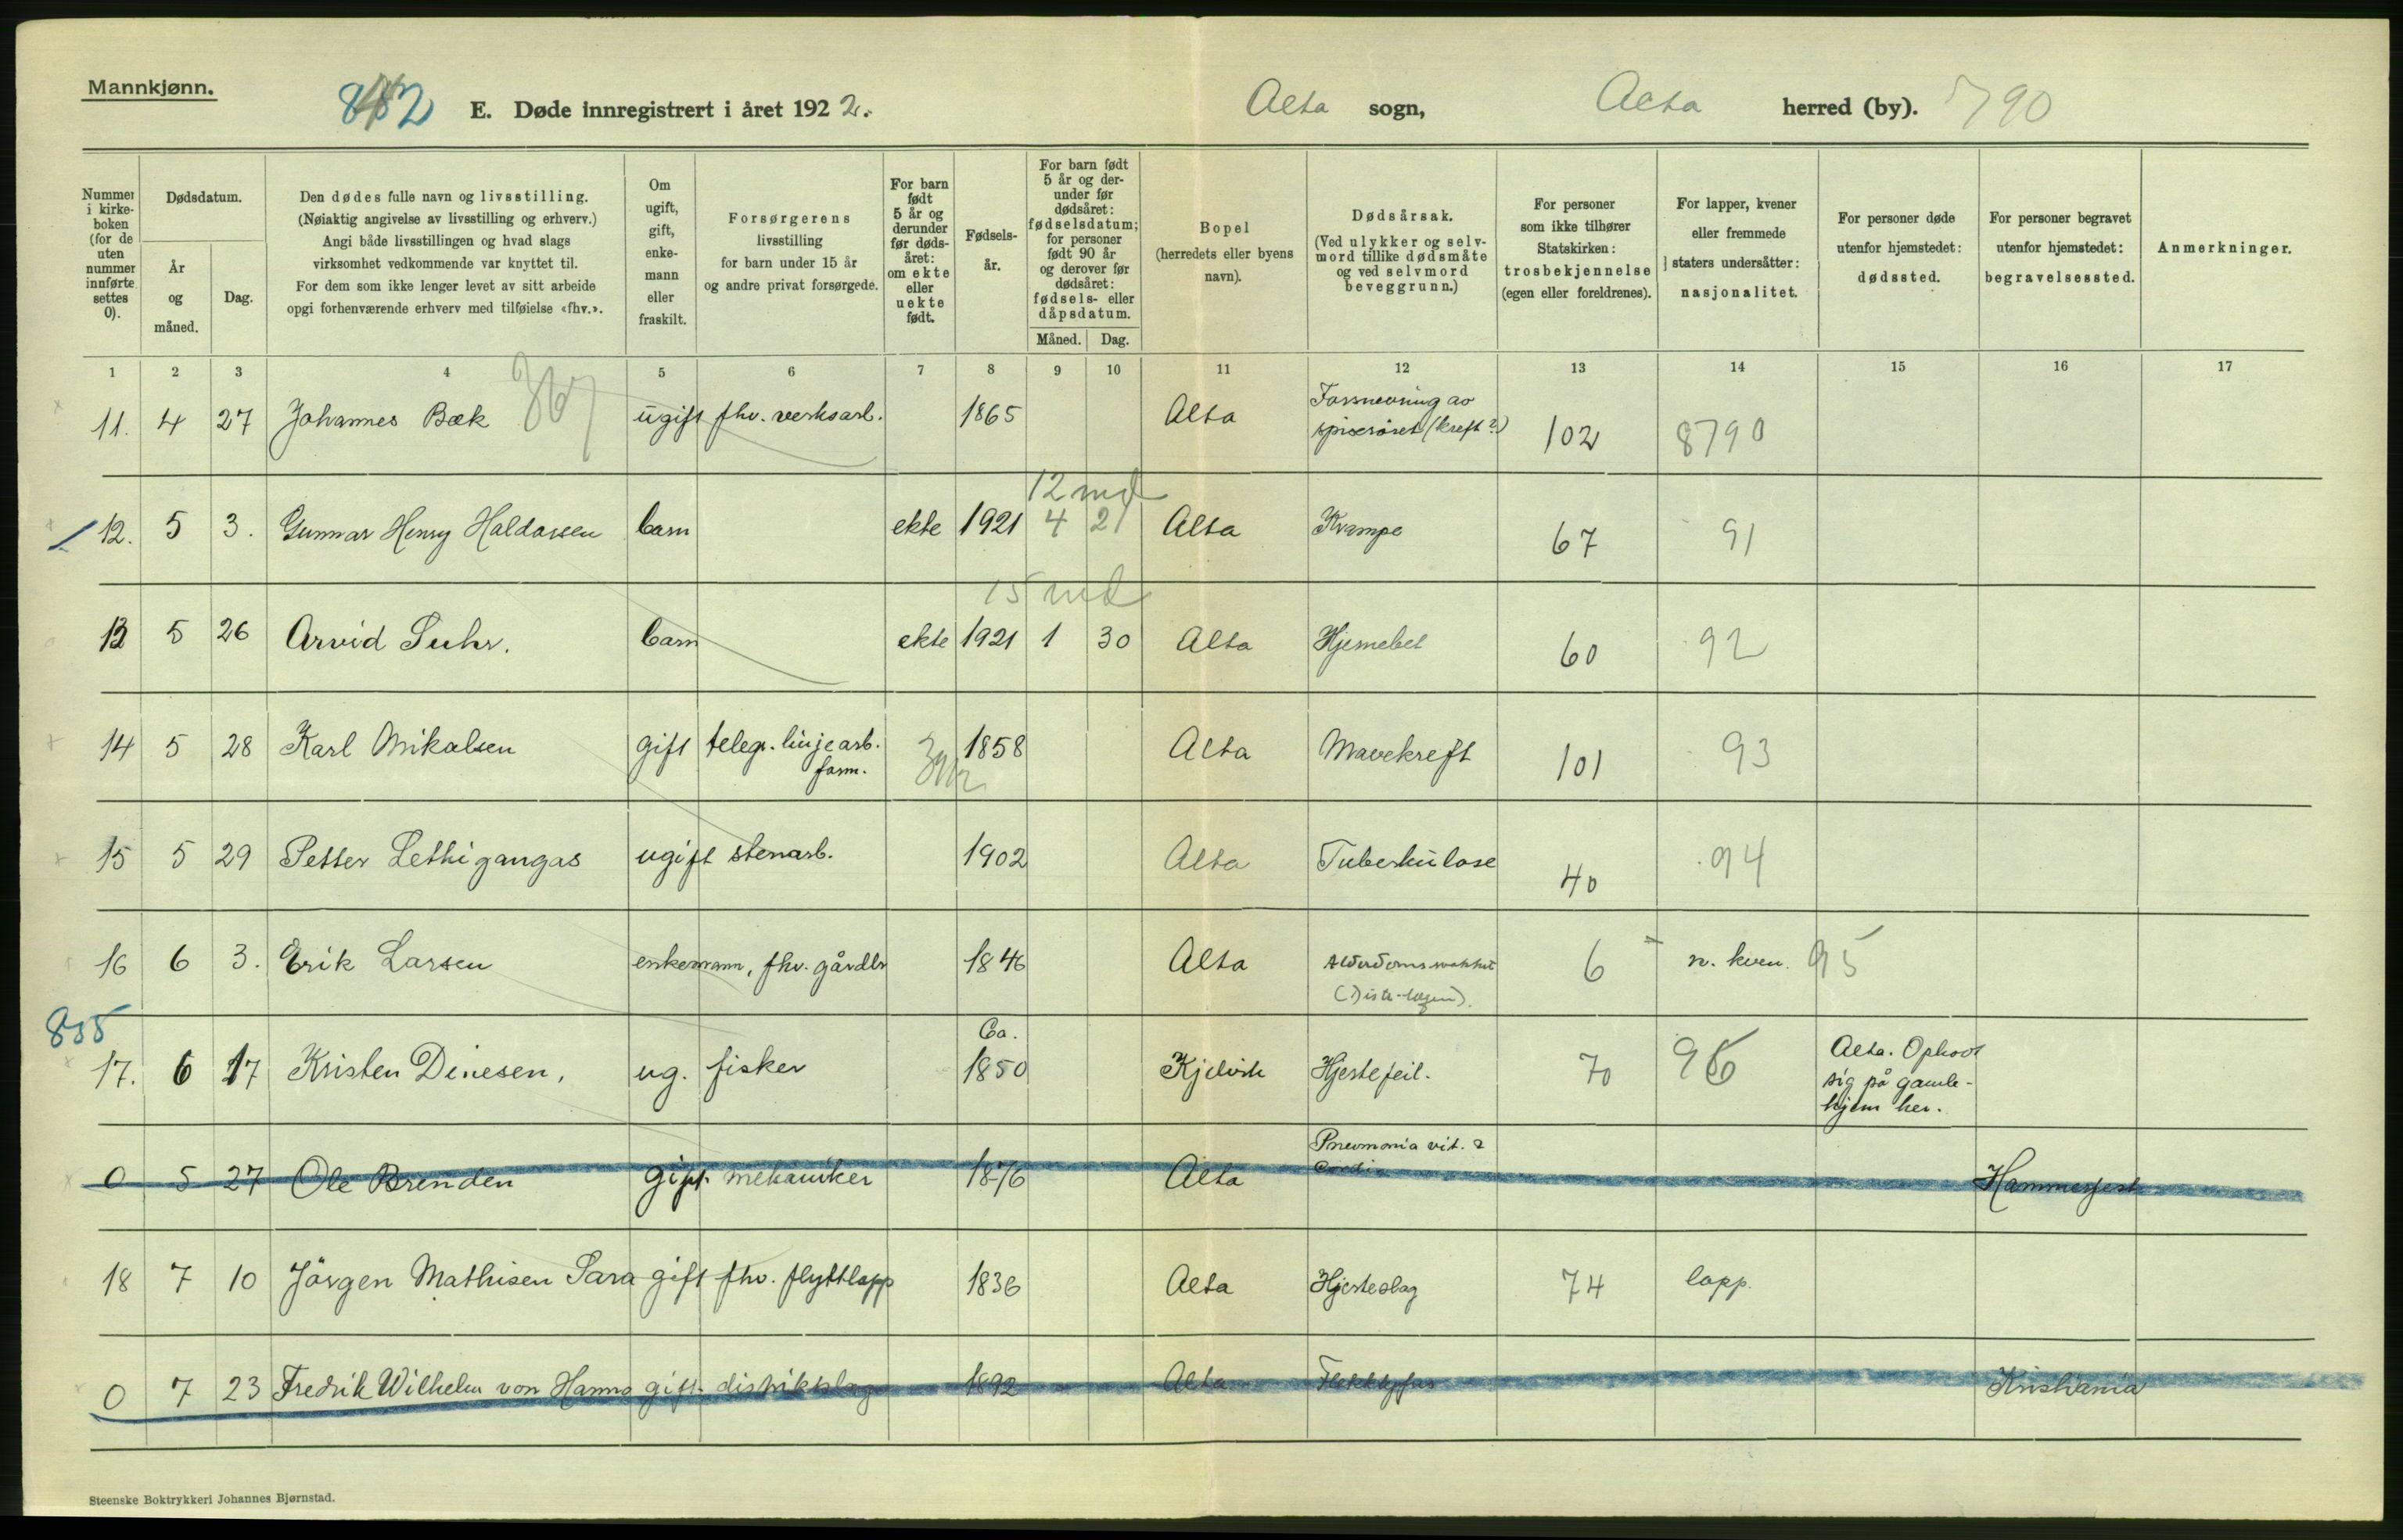 Mannkjønn.
842 E. Døde innregistrert i året 1922. Alta sogn, Alta herred (by). 790
Nummer i kirke-boken (for de uten nummer innførte settes 0).
Dødsdatum.
År og måned.
Dag.
Den dødes fulle navn og livsstilling.
(Nøiaktig angivelse av livsstilling og erhverv.)
Angi både livsstillingen og hvad slags
virksomhet vedkommende var knyttet til.
For dem som ikke lenger levet av sitt arbeide
opgi forhenværende erhverv med tilføielse «fhv.».
Om ugift, gift, enke-mann eller fraskilt.
Forsørgerens livsstilling for barn under 15 år og andre privat forsørgede.
For barn født 5 år og derunder før døds-året: om ekte eller uekte født.
Fødsels-år.
For barn født 5 år og der-under før dødsåret: fødselsdatum; for personer født 90 år og derover før dødsåret: fødsels- eller dåpsdatum.
Måned. Dag.
Bopel (herredets eller byens navn).
Dødsårsak.
(Ved ulykker og selv-mord tillike dødsmåte og ved selvmord beveggrunn.)
For personer som ikke tilhører Statskirken: trosbekjennelse (egen eller foreldrenes).
For lapper, kvener eller fremmede staters undersåtter: nasjonalitet.
For personer døde utenfor hjemstedet: dødssted.
For personer begravet utenfor hjemstedet: begravelsessted.
Anmerkninger.
1 2 3 4 5 6 7 8 9 10 11 12 13 14 15 16 17
11. 4 27 Johannes Bæk 367 ugift fhv. verksarb. 1865 Alta Forsnevring av spiserøret (kreft?) 102 8790
12 md
12. 5 3. Gunnar Henry Haldorsen barn ekte 1921 4 21 Alta Krampe 67 91
15 md
13 5 26 Arvid Suhr. barn ekte 1921 1 30 Alta Hjernebet 60 92
14 5 28 Karl Mikalsen gift telegr. linjearb. form. 1858 Alta Mavekreft 101 93
15 5 29 Petter Lethigangas ugift stenarb. 1902 Alta Tuberkulose 40 94
16 6 3. Erik Larsen enkemann, fhv. gårdbr 1846 Alta Alderdomssvakhet 6 n. kven. 95
855
17. 6 17 Kristen Dinesen, ug. fisker Ca. 1850 Kjelvik Hjertefeil. 70 96 Alta. Ophovt
sig på gamle-
hjem her.
0 5 27 Ole Brenden gift. mekaniker 1876 Alta Pneumonia vit. Hammerfest
18 7 10 Jörgen Mathisen Sara gift fhv. flyttlapp 1836 Alta Hjerteslag 74 lapp.
0 7 23 Fredrik Wilhelm von Hanno gift. distriktslæge 1892 Alta Flekktyfus Kristiania
Steenske Boktrykkeri Johannes Bjørnstad.